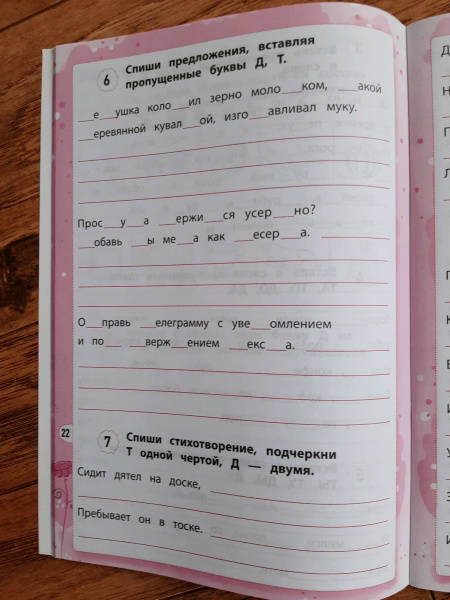 6 Спиши предложения, вставляя
пропущенные буквы Д, Т.
__е__ушка коло__ил зерно моло__ком, __акой
__еревянной кувал__ой, изго__авливал муку.
Прос__у__а __ержи__ся усер__но?
__обавь __ы ме__а как __есер__а.
О__правь __елеграмму с уве__омлением
и по__ __верж__ением __екс__а.
22
7 Спиши стихотворение, подчеркни
Т одной чертой, Д — двумя.
Сидит дятел на доске,
Пребывает он в тоске.